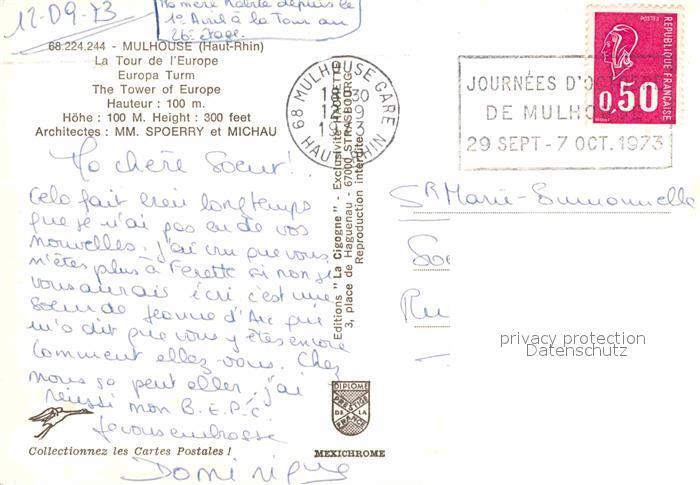 12-09-73
Ma mère habite depuis le
1er Avril à la Tour au
26e étage.
68.224.244 - MULHOUSE (Haut-Rhin)
La Tour de l'Europe
Europa Turm
The Tower of Europe
Hauteur : 100 m.
Höhe : 100 M. Height : 300 feet
Architectes : MM. SPOERRY et MICHAU
Ma chère Soeur !
Cela fait bien longtemps
que je n'ai pas eu de vos
nouvelles. J'ai cru que vous
n'êtes plus à Ferette si non je
vous aurais écri c'est une
Soeur de Jeanne d'Arc que
m'a dit que vous y êtes encore
Comment allez-vous. Chez
nous sa peut aller. J'ai
réussi mon B.E.P.C.
Je vous embrasse
Dominique
Collectionnez les Cartes Postales !
Editions "La Cigogne" - Exclusivité HACHETTE
3, place de Haguenau - 67000 STRASBOURG
Reproduction interdite
DIPLOME
PRESTIGE
DE LA
FRANCE
MEXICHROME
68 MULHOUSE GARE
HAUT RHIN
JOURNÉES D'OCT
DE MULHO
29 SEPT - 7 OCT. 1973
POSTES
0,50
REPUBLIQUE FRANÇAISE
Sr Marie-Emmanuelle
Soe
Ru
privacy protection
Datenschutz